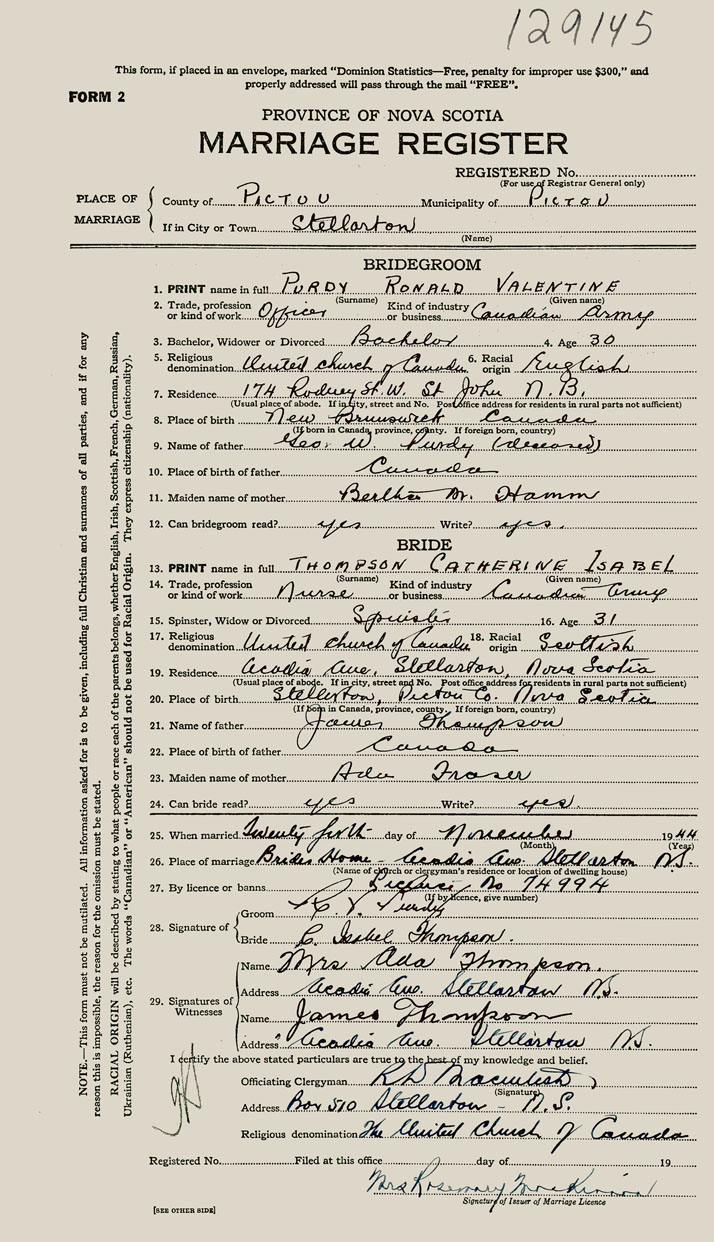 129145
This form, if placed in an envelope, marked "Dominion Statistics—Free, penalty for improper use $300," and
properly addressed will pass through the mail "FREE".
FORM 2
PROVINCE OF NOVA SCOTIA
MARRIAGE REGISTER
REGISTERED No.
(For use of Registrar General only)
PLACE OF MARRIAGE
County of PICTOU Municipality of PICTOU
If in City or Town Stellarton
(Name)
BRIDEGROOM
1. PRINT name in full PURDY RONALD VALENTINE
(Surname) (Given name)
2. Trade, profession or kind of work Officer Kind of industry or business Canadian Army
3. Bachelor, Widower or Divorced Bachelor 4. Age 30
5. Religious denomination United church of Canada 6. Racial origin English
7. Residence 174 Rodney St. W. St John N.B.
(Usual place of abode. If in city, street and No. Post office address for residents in rural parts not sufficient)
8. Place of birth New Brunswick Canada
(If born in Canada, province, county. If foreign born, country)
9. Name of father Geo. W. Purdy (deceased)
10. Place of birth of father Canada
11. Maiden name of mother Bertha M. Hamm
12. Can bridegroom read? yes Write? yes.
BRIDE
13. PRINT name in full THOMPSON CATHERINE ISABEL
(Surname) (Given name)
14. Trade, profession or kind of work Nurse Kind of industry or business Canadian Army
15. Spinster, Widow or Divorced Spinster 16. Age 31
17. Religious denomination United church of Canada 18. Racial origin Scottish
19. Residence Acadia Ave, Stellarton, Nova Scotia
(Usual place of abode. If in city, street and No. Post office address for residents in rural parts not sufficient)
20. Place of birth Stellarton, Pictou Co. Nova Scotia
(If born in Canada, province, county. If foreign born, country)
21. Name of father James Thompson
22. Place of birth of father Canada
23. Maiden name of mother Ada Fraser
24. Can bride read? yes Write? yes.
25. When married Twenty day of November 1944
(Month) (Year)
26. Place of marriage Brides Home - Acadia Ave. Stellarton N.S.
(Name of church or clergyman's residence or location of dwelling house)
27. By licence or banns Licence No 74994
(If by licence, give number)
28. Signature of
Groom R. V. Purdy
Bride C. Isabel Thompson.
29. Signatures of Witnesses
Name Mrs Ada Thompson.
Address Acadia Ave. Stellarton N.S.
Name James Thompson
Address Acadia Ave. Stellarton N.S.
I certify the above stated particulars are true to the best of my knowledge and belief.
Officiating Clergyman
(Signature)
Address Box 510 Stellarton - N.S.
Religious denomination The United Church of Canada
Registered No. Filed at this office day of 19
Mrs Rosemary
Signature of Issuer of Marriage Licence
[SEE OTHER SIDE]
NOTE.—This form must not be mutilated. All information asked for is to be given, including full Christian and surnames of all parties, and if for any
reason this is impossible, the reason for the omission must be stated.
RACIAL ORIGIN will be described by stating to what people or race each of the parents belongs, whether English, Irish, Scottish, French, German, Russian,
Ukrainian (Ruthenian), etc. The words "Canadian" or "American" should not be used for Racial Origin. They express citizenship (nationality).